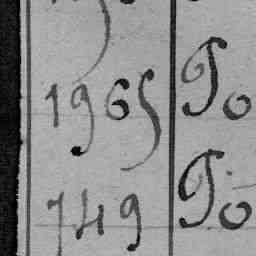 1965 To
749 To